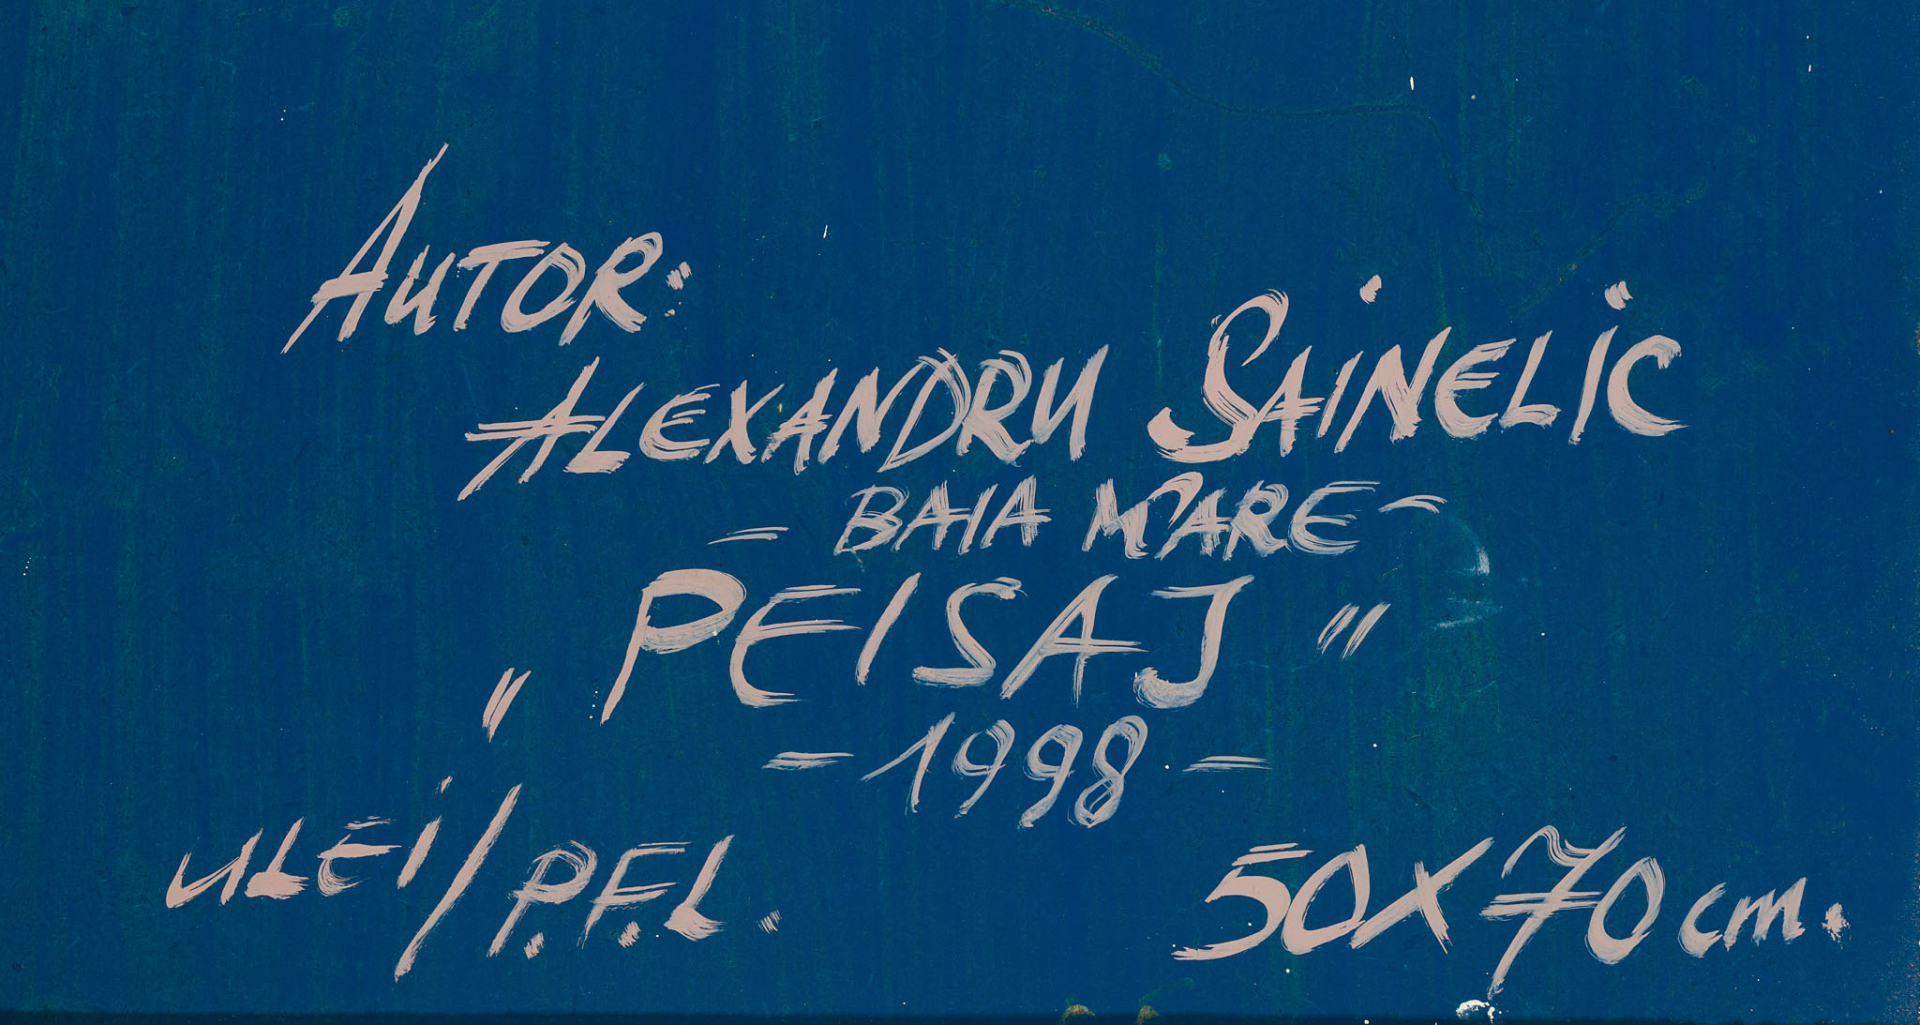 AUTOR:
ALEXANDRU SAINELIC
- BAIA MARE -
„PEISAJ"
- 1998 -
ULEI/P.F.L.
50X70 cm.